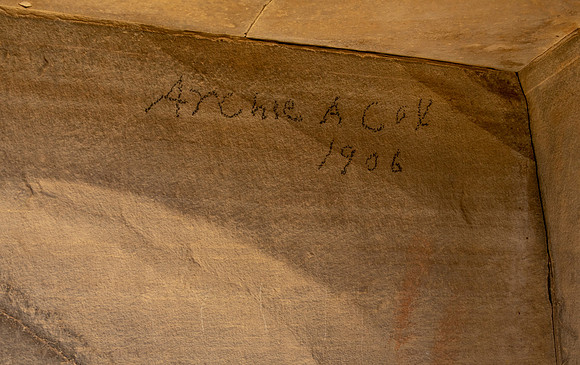 Archie A Cox
1906